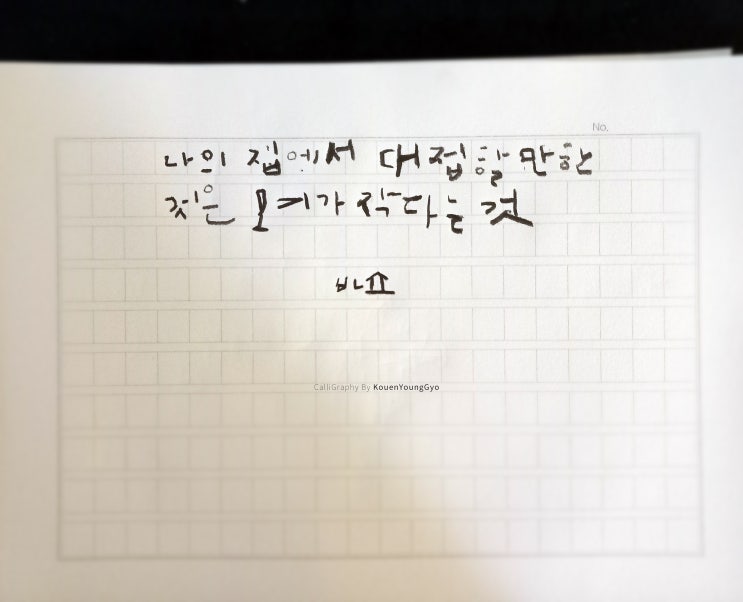 No.
나의 집에서 대접할 만한
것은 모기가 작다는 것
바쇼
CalliGraphy By KouenYoungGyo